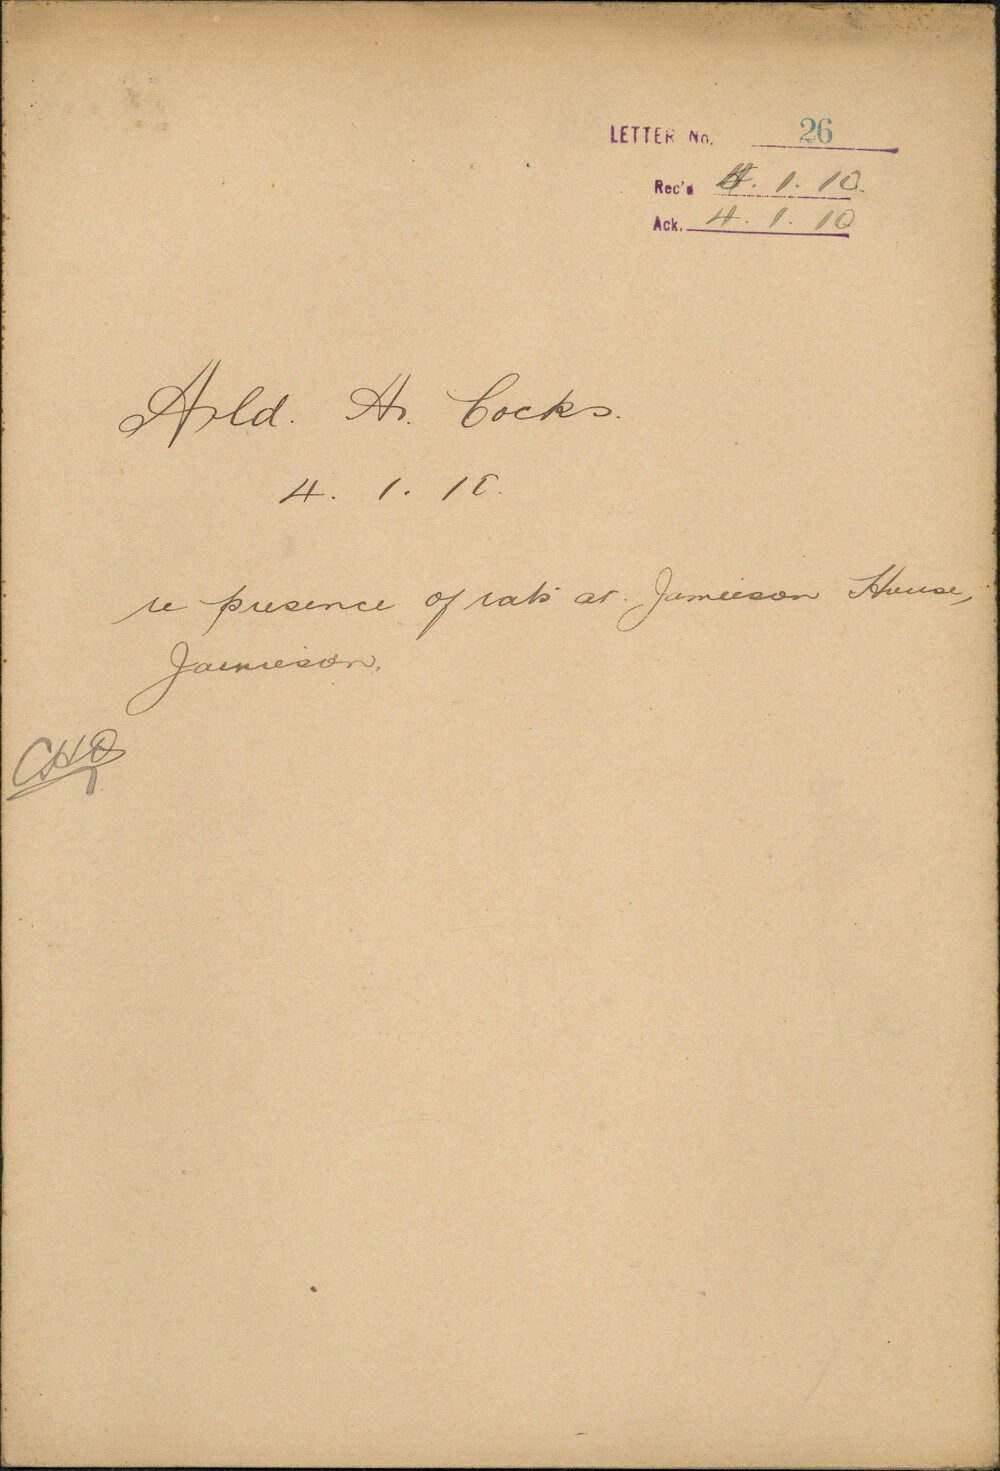 LETTER No. 26
Rec'd 4. 1. 10.
Ack. 4. 1. 10
Ald. H. Cocks.
4. 1. 10.
re presence of rats at Jamieson House,
Jamieson.
CHO